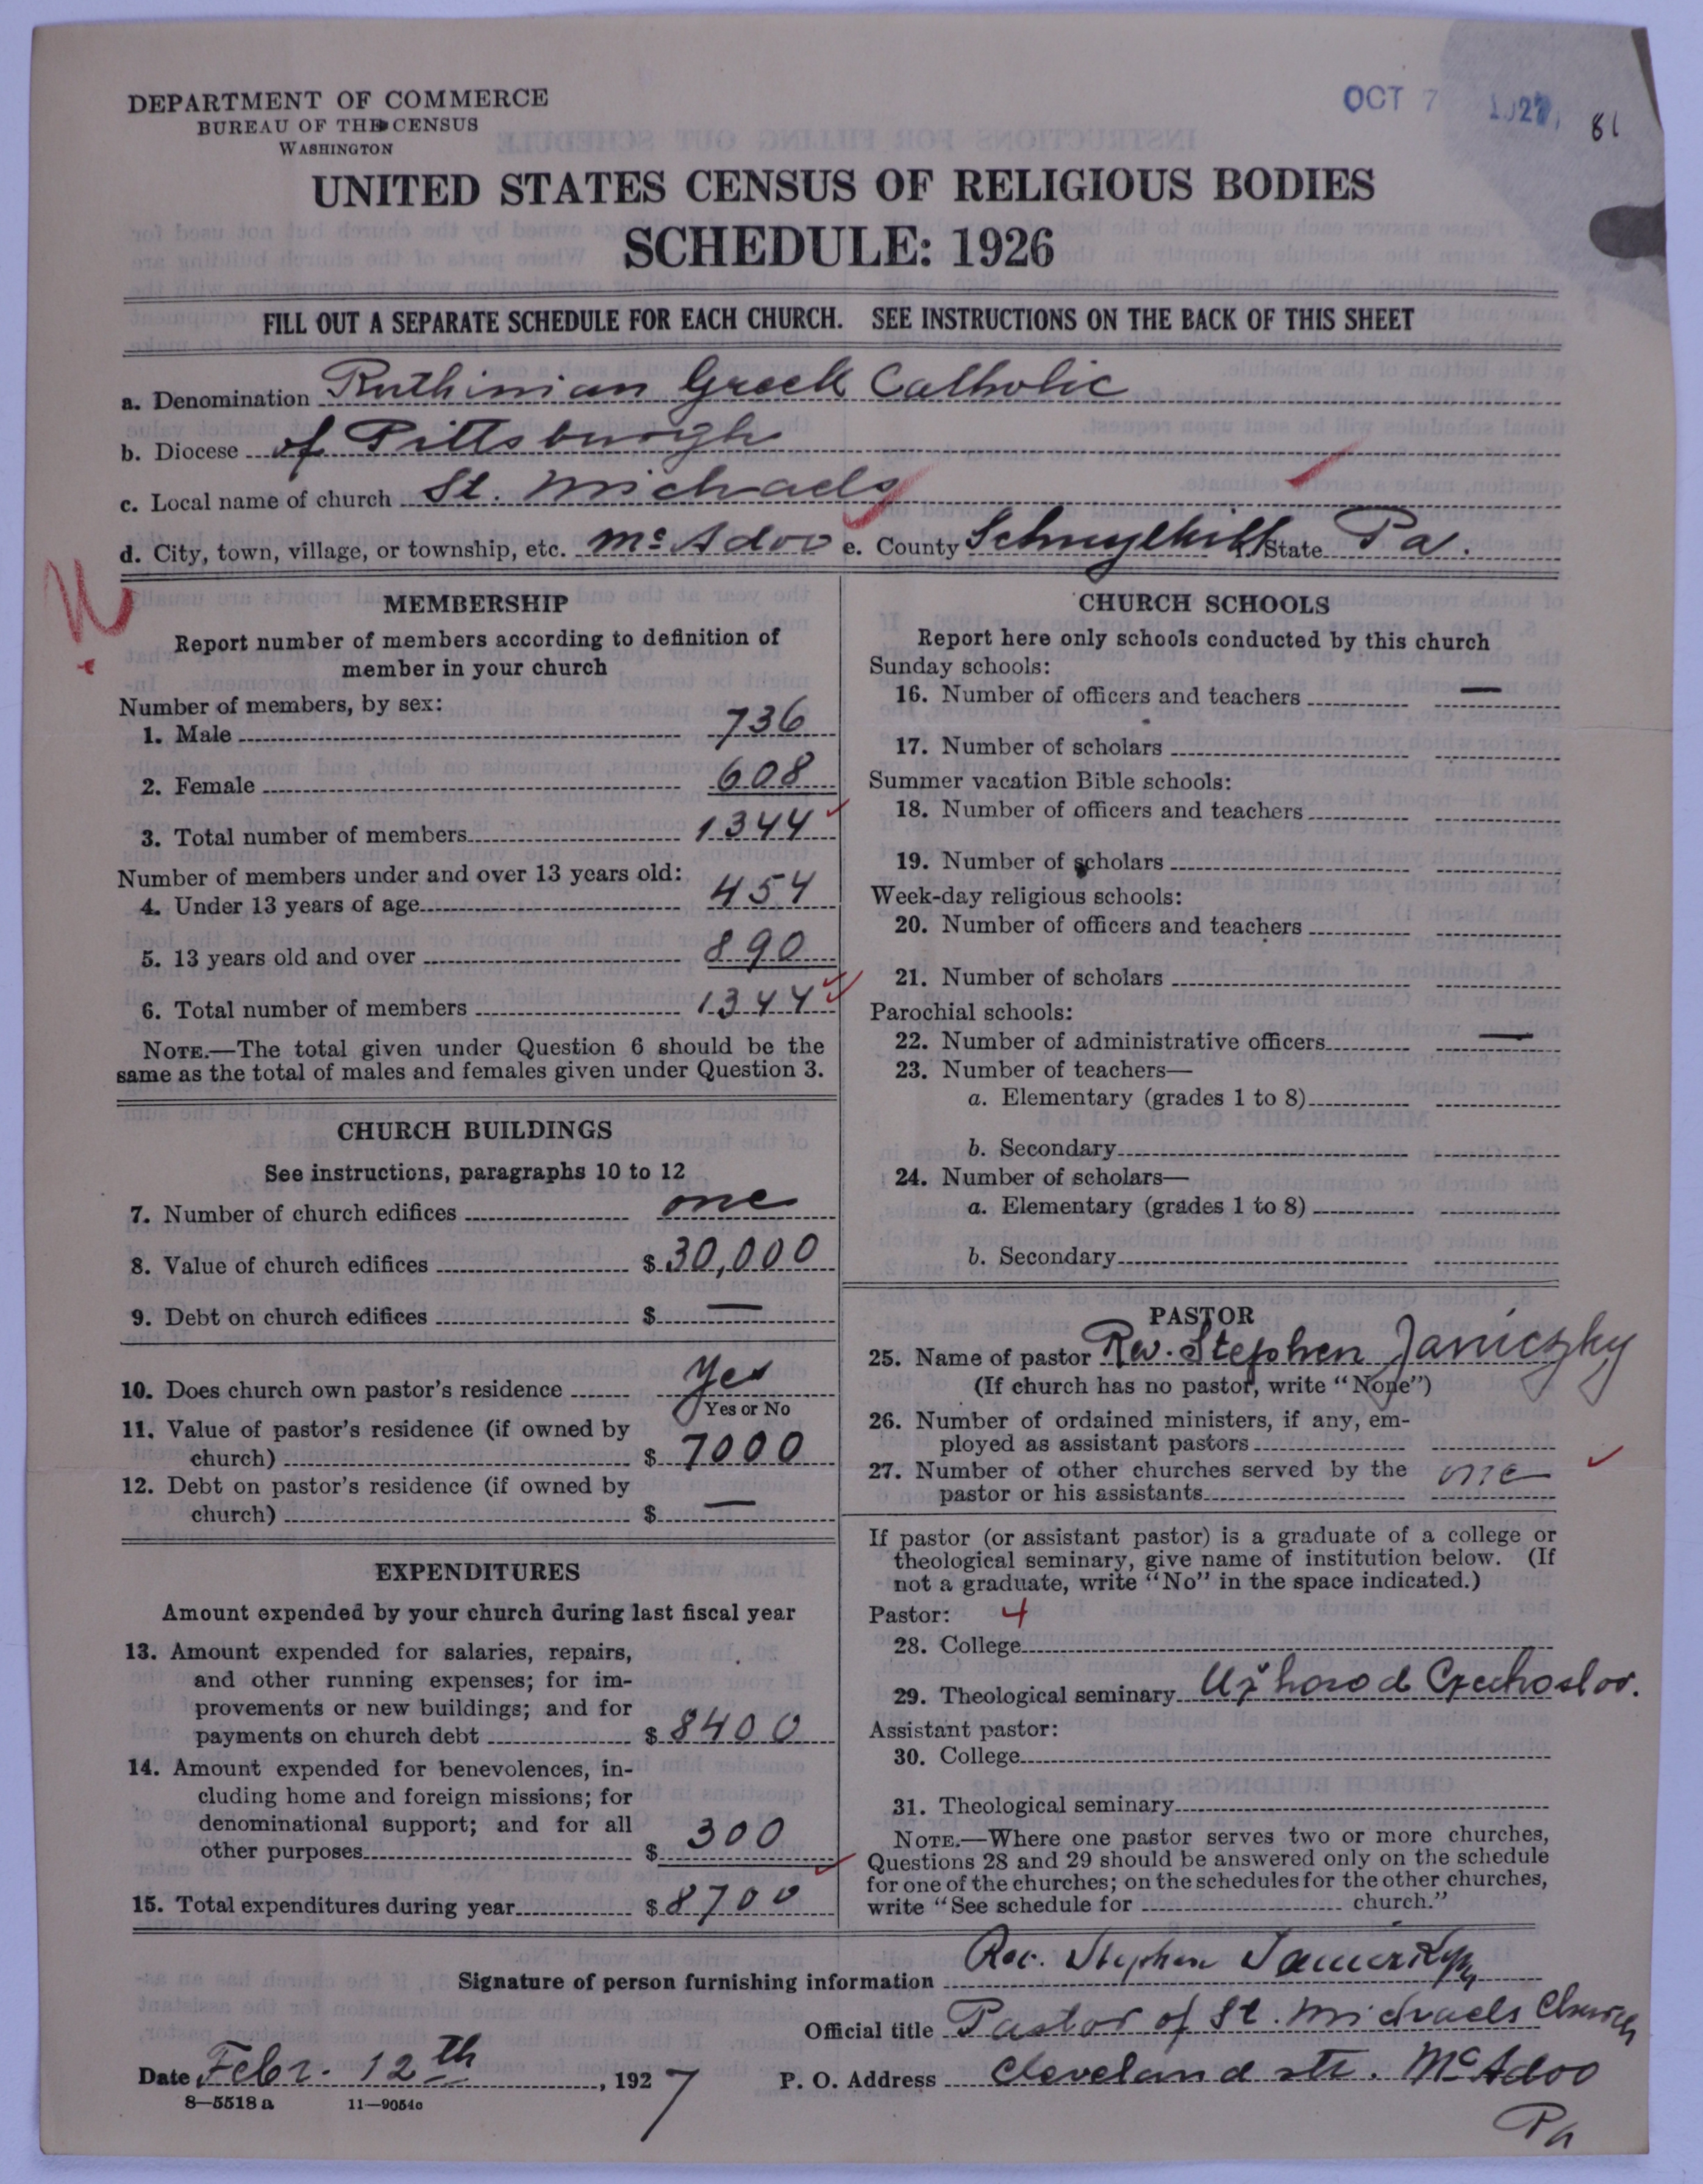 DEPARTMENT OF COMMERCE
BUREAU OF THE CENSUS
WASHINGTON
OCT 7 1927
81
UNITED STATES CENSUS OF RELIGIOUS BODIES
SCHEDULE: 1926
FILL OUT A SEPARATE SCHEDULE FOR EACH CHURCH. SEE INSTRUCTIONS ON THE BACK OF THIS SHEET
a. Denomination Ruthinian Greek Catholic
b. Diocese of Pittsburgh
c. Local name of church St. Michaels
d. City, town, village, or township, etc. McAdoo e. County Schuylkill State Pa.
MEMBERSHIP
Report number of members according to definition of
member in your church
Number of members, by sex:
1. Male 736
2. Female 608
3. Total number of members 1344
Number of members under and over 13 years old:
4. Under 13 years of age 454
5. 13 years old and over 890
6. Total number of members 1344
NOTE.—The total given under Question 6 should be the
same as the total of males and females given under Question 3.
CHURCH BUILDINGS
See instructions, paragraphs 10 to 12
7. Number of church edifices one
8. Value of church edifices $ 30,000
9. Debt on church edifices $ —
10. Does church own pastor's residence Yes
Yes or No
11. Value of pastor's residence (if owned by
church) $ 7000
12. Debt on pastor's residence (if owned by
church) $ —
EXPENDITURES
Amount expended by your church during last fiscal year
13. Amount expended for salaries, repairs,
and other running expenses; for im-
provements or new buildings; and for
payments on church debt $ 8400
14. Amount expended for benevolences, in-
cluding home and foreign missions; for
denominational support; and for all
other purposes $ 300
15. Total expenditures during year $ 8700
CHURCH SCHOOLS
Report here only schools conducted by this church
Sunday schools:
16. Number of officers and teachers —
17. Number of scholars
Summer vacation Bible schools:
18. Number of officers and teachers
19. Number of scholars
Week-day religious schools:
20. Number of officers and teachers
21. Number of scholars
Parochial schools:
22. Number of administrative officers —
23. Number of teachers—
a. Elementary (grades 1 to 8)
b. Secondary
24. Number of scholars—
a. Elementary (grades 1 to 8)
b. Secondary
PASTOR
25. Name of pastor Rev. Stephen Janiczky
(If church has no pastor, write "None")
26. Number of ordained ministers, if any, em-
ployed as assistant pastors
27. Number of other churches served by the
pastor or his assistants one
If pastor (or assistant pastor) is a graduate of a college or
theological seminary, give name of institution below. (If
not a graduate, write "No" in the space indicated.)
Pastor: 4
28. College
29. Theological seminary Užhorod Czechoslov.
Assistant pastor:
30. College
31. Theological seminary
NOTE.—Where one pastor serves two or more churches,
Questions 28 and 29 should be answered only on the schedule
for one of the churches; on the schedules for the other churches,
write "See schedule for church."
Signature of person furnishing information Rev. Stephen Janiczky
Official title Pastor of St. Michaels Church
Date Febr. 12th, 1927 P. O. Address Cleveland str. McAdoo
Pa
8—5518 a 11—9054c